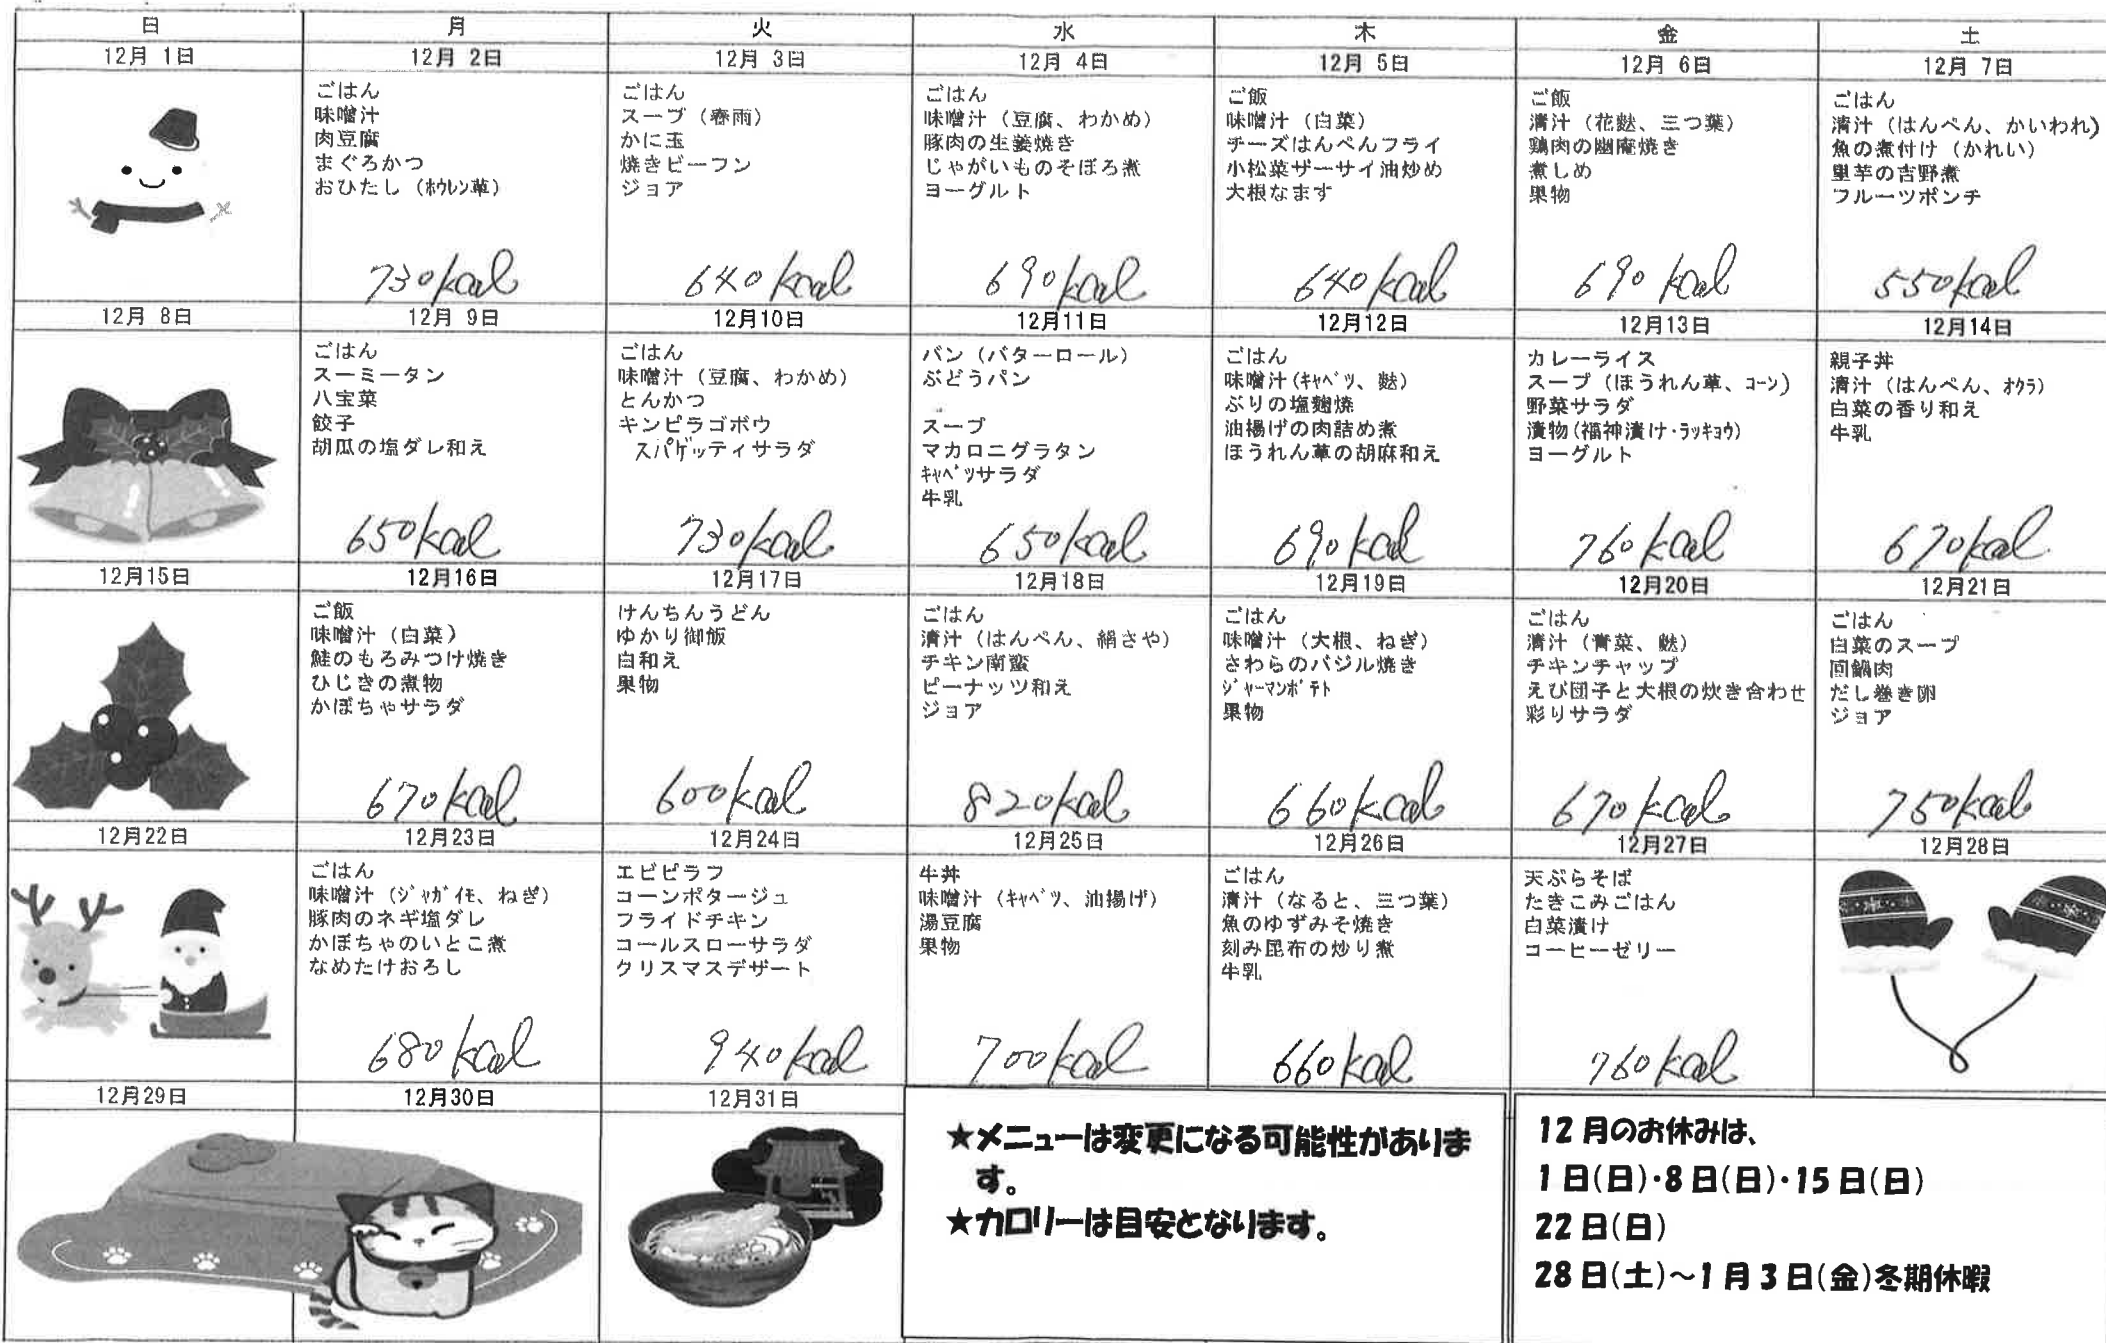 日 月 火 水 木 金 土
12月 1日 12月 2日 12月 3日 12月 4日 12月 5日 12月 6日 12月 7日
ごはん
味噌汁
肉豆腐
まぐろかつ
おひたし（ホウレン草）
730kcal
ごはん
スープ（春雨）
かに玉
焼きビーフン
ジョア
640kcal
ごはん
味噌汁（豆腐、わかめ）
豚肉の生姜焼き
じゃがいものそぼろ煮
ヨーグルト
690kcal
ご飯
味噌汁（白菜）
チーズはんぺんフライ
小松菜ザーサイ油炒め
大根なます
640kcal
ご飯
清汁（花麩、三つ葉）
鶏肉の幽庵焼き
煮しめ
果物
690kcal
ごはん
清汁（はんぺん、かいわれ）
魚の煮付け（かれい）
里芋の吉野煮
フルーツポンチ
550kcal
12月 8日 12月 9日 12月10日 12月11日 12月12日 12月13日 12月14日
ごはん
スーミータン
八宝菜
餃子
胡瓜の塩ダレ和え
650kcal
ごはん
味噌汁（豆腐、わかめ）
とんかつ
キンピラゴボウ
スパゲッティサラダ
730kcal
パン（バターロール）
ぶどうパン
スープ
マカロニグラタン
キャベツサラダ
牛乳
650kcal
ごはん
味噌汁（キャベツ、麩）
ぶりの塩麹焼
油揚げの肉詰め煮
ほうれん草の胡麻和え
690kcal
カレーライス
スープ（ほうれん草、コーン）
野菜サラダ
漬物（福神漬け・ラッキョウ）
ヨーグルト
760kcal
親子丼
清汁（はんぺん、オクラ）
白菜の香り和え
牛乳
670kcal
12月15日 12月16日 12月17日 12月18日 12月19日 12月20日 12月21日
ご飯
味噌汁（白菜）
鮭のもろみつけ焼き
ひじきの煮物
かぼちゃサラダ
670kcal
けんちんうどん
ゆかり御飯
白和え
果物
600kcal
ごはん
清汁（はんぺん、絹さや）
チキン南蛮
ピーナッツ和え
ジョア
820kcal
ごはん
味噌汁（大根、ねぎ）
さわらのバジル焼き
ジャーマンポテト
果物
660kcal
ごはん
清汁（青菜、麩）
チキンチャップ
えび団子と大根の炊き合わせ
彩りサラダ
670kcal
ごはん
白菜のスープ
回鍋肉
だし巻き卵
ジョア
750kcal
12月22日 12月23日 12月24日 12月25日 12月26日 12月27日 12月28日
ごはん
味噌汁（ジャガイモ、ねぎ）
豚肉のネギ塩ダレ
かぼちゃのいとこ煮
なめたけおろし
680kcal
エビピラフ
コーンポタージュ
フライドチキン
コールスローサラダ
クリスマスデザート
940kcal
牛丼
味噌汁（キャベツ、油揚げ）
湯豆腐
果物
700kcal
ごはん
清汁（なると、三つ葉）
魚のゆずみそ焼き
刻み昆布の炒り煮
牛乳
660kcal
天ぷらそば
たきこみごはん
白菜漬け
コーヒーゼリー
760kcal
12月29日 12月30日 12月31日
★メニューは変更になる可能性がありま
す。
★カロリーは目安となります。
12月のお休みは、
1日(日)・8日(日)・15日(日)
22日(日)
28日(土)～1月3日(金)冬期休暇